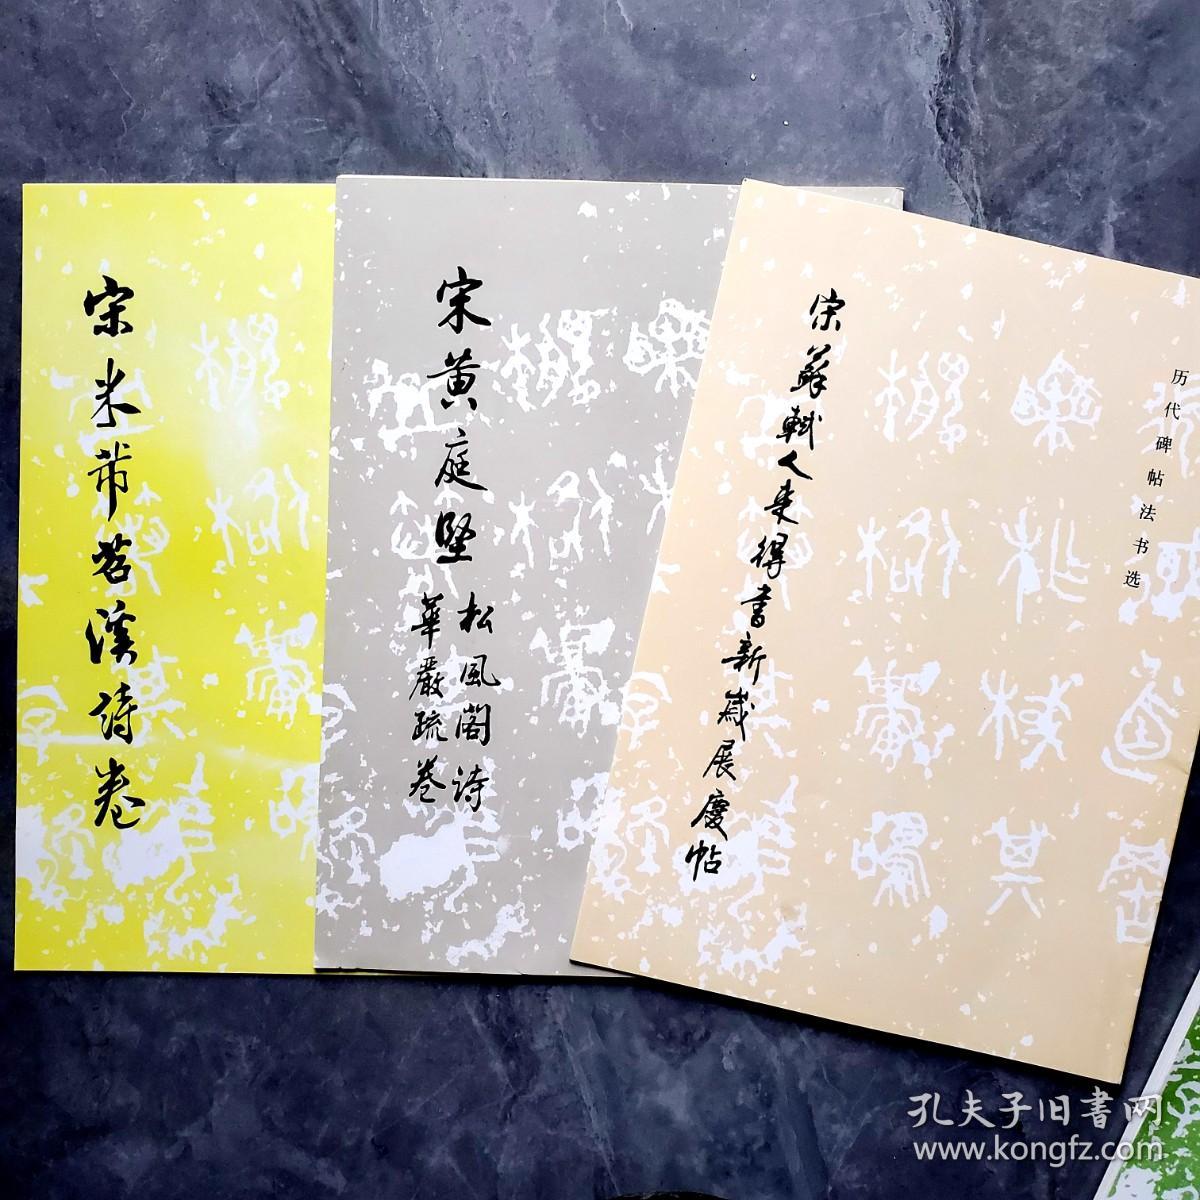 宋米芾苕溪詩卷
宋黄庭堅
松風閣詩
華嚴疏卷
宋蘇軾人来得書新歲展慶帖
历代碑帖法书选
孔夫子旧书网
www.kongfz.com